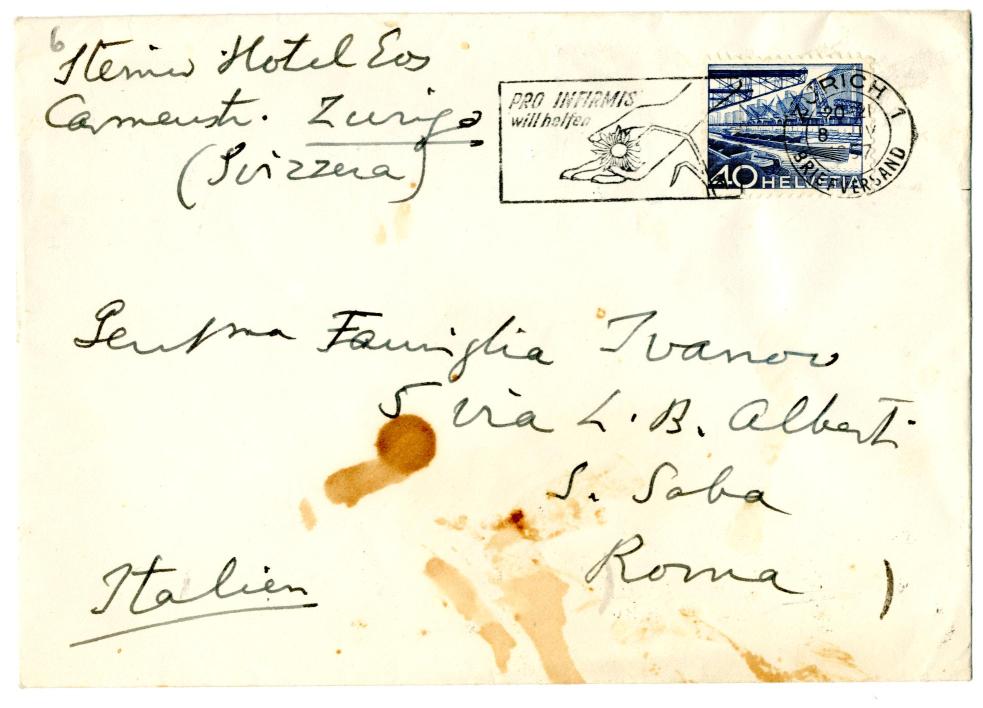 6
Steiner Hotel Eos
Carmenstr. Zurigo
(Svizzera)
PRO INFIRMIS
will helfen
40 HELVETIA
ZÜRICH 1
BRIEFVERSAND
Famiglia Ivanov
5 via L. B. Alberti
S. Saba
Roma )
Italien